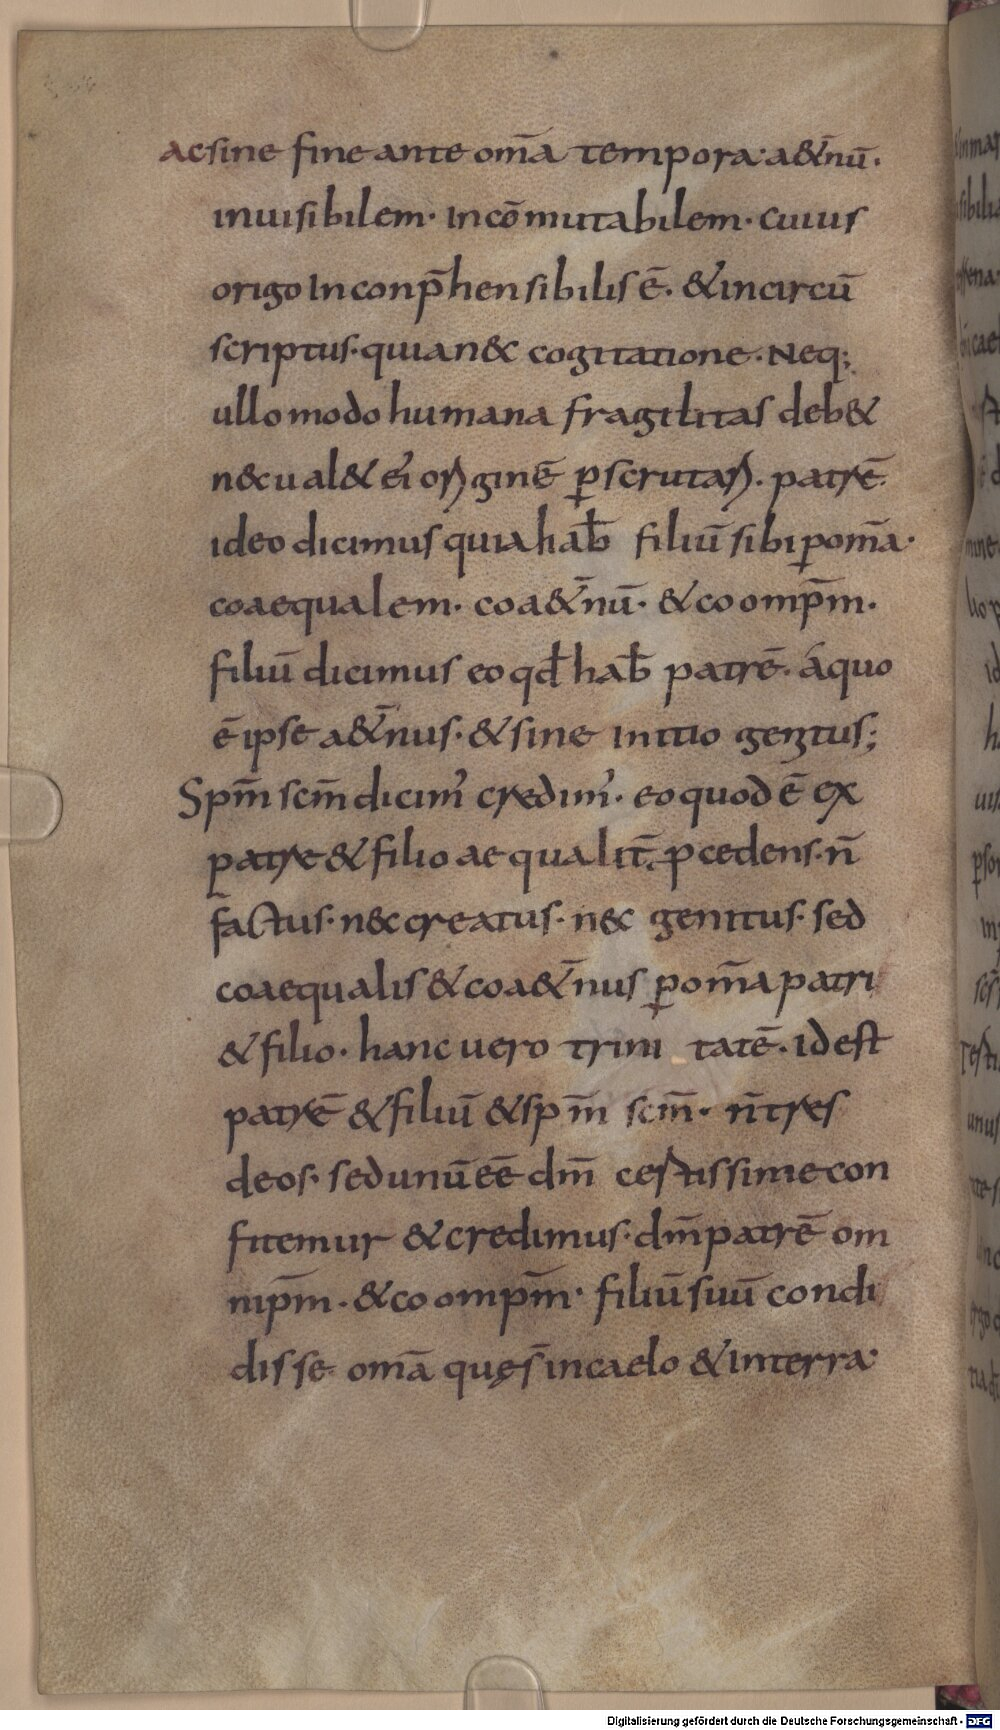 acsine fine ante om̄a tempora· a&̄nū·
inuisibilem· Incōmutabilem· cuius
origo Inconp̄hensibilis ē· &incircū
scriptus· quian&c cogitatione· Neq;
ullo modo humana fragilitas deb&
n&cual& ei' originē ꝑscrutari· patrē·
ideo dicimus quia hab̄ filiū sibi ꝑ om̄a·
coaequalem· coa&̄nū· &co omp̄m·
filiū dicimus eo qd̄ hab̄ patrē· áquo
ē ipse a&̄nus· &sine Initio genitus;
Sp̄m sc̄m dicim' credim'· eo quod ē ex
patre &filio aequalit̄ ꝓcedens· n̄
factus· n&c creatus· n&c genitus· sed
coaequalis &coa&̄nus ꝑ om̄a patri
&filio· hanc uero trini tatē· id est
patrē &filiū &sp̄m sc̄m· n̄ tres
deos· sed unū eē dm̄ certissime con
fitemur &credimus· dm̄ patrē om
nip̄m· &co omp̄m· filiū suū condi
disse om̄a quę s̄ in caelo &interra·
Digitalisierung gefördert durch die Deutsche Forschungsgemeinschaft - DFG